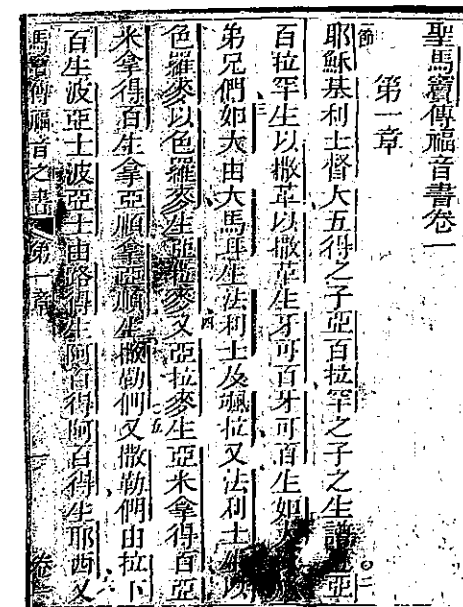 聖馬竇傳福音書卷一
第一章
一節
耶穌基利士督大五得之子亞百拉罕之子之生譜 二 亞
百拉罕生以撒革以撒革生牙可百牙可百生如
三
弟兄們如大由大馬耳生法利士及颯拉又法利士 以
色羅麥以色羅麥生亞拉麥 四 又亞拉麥生亞米拿得百亞
米拿得百生拿亞順拿亞順生撒勒們 五 又撒勒們由拉下
百生波亞士波亞士由路得生阿百得阿百得生耶西 六 又
馬竇傳福音之書 第一章 一 卷